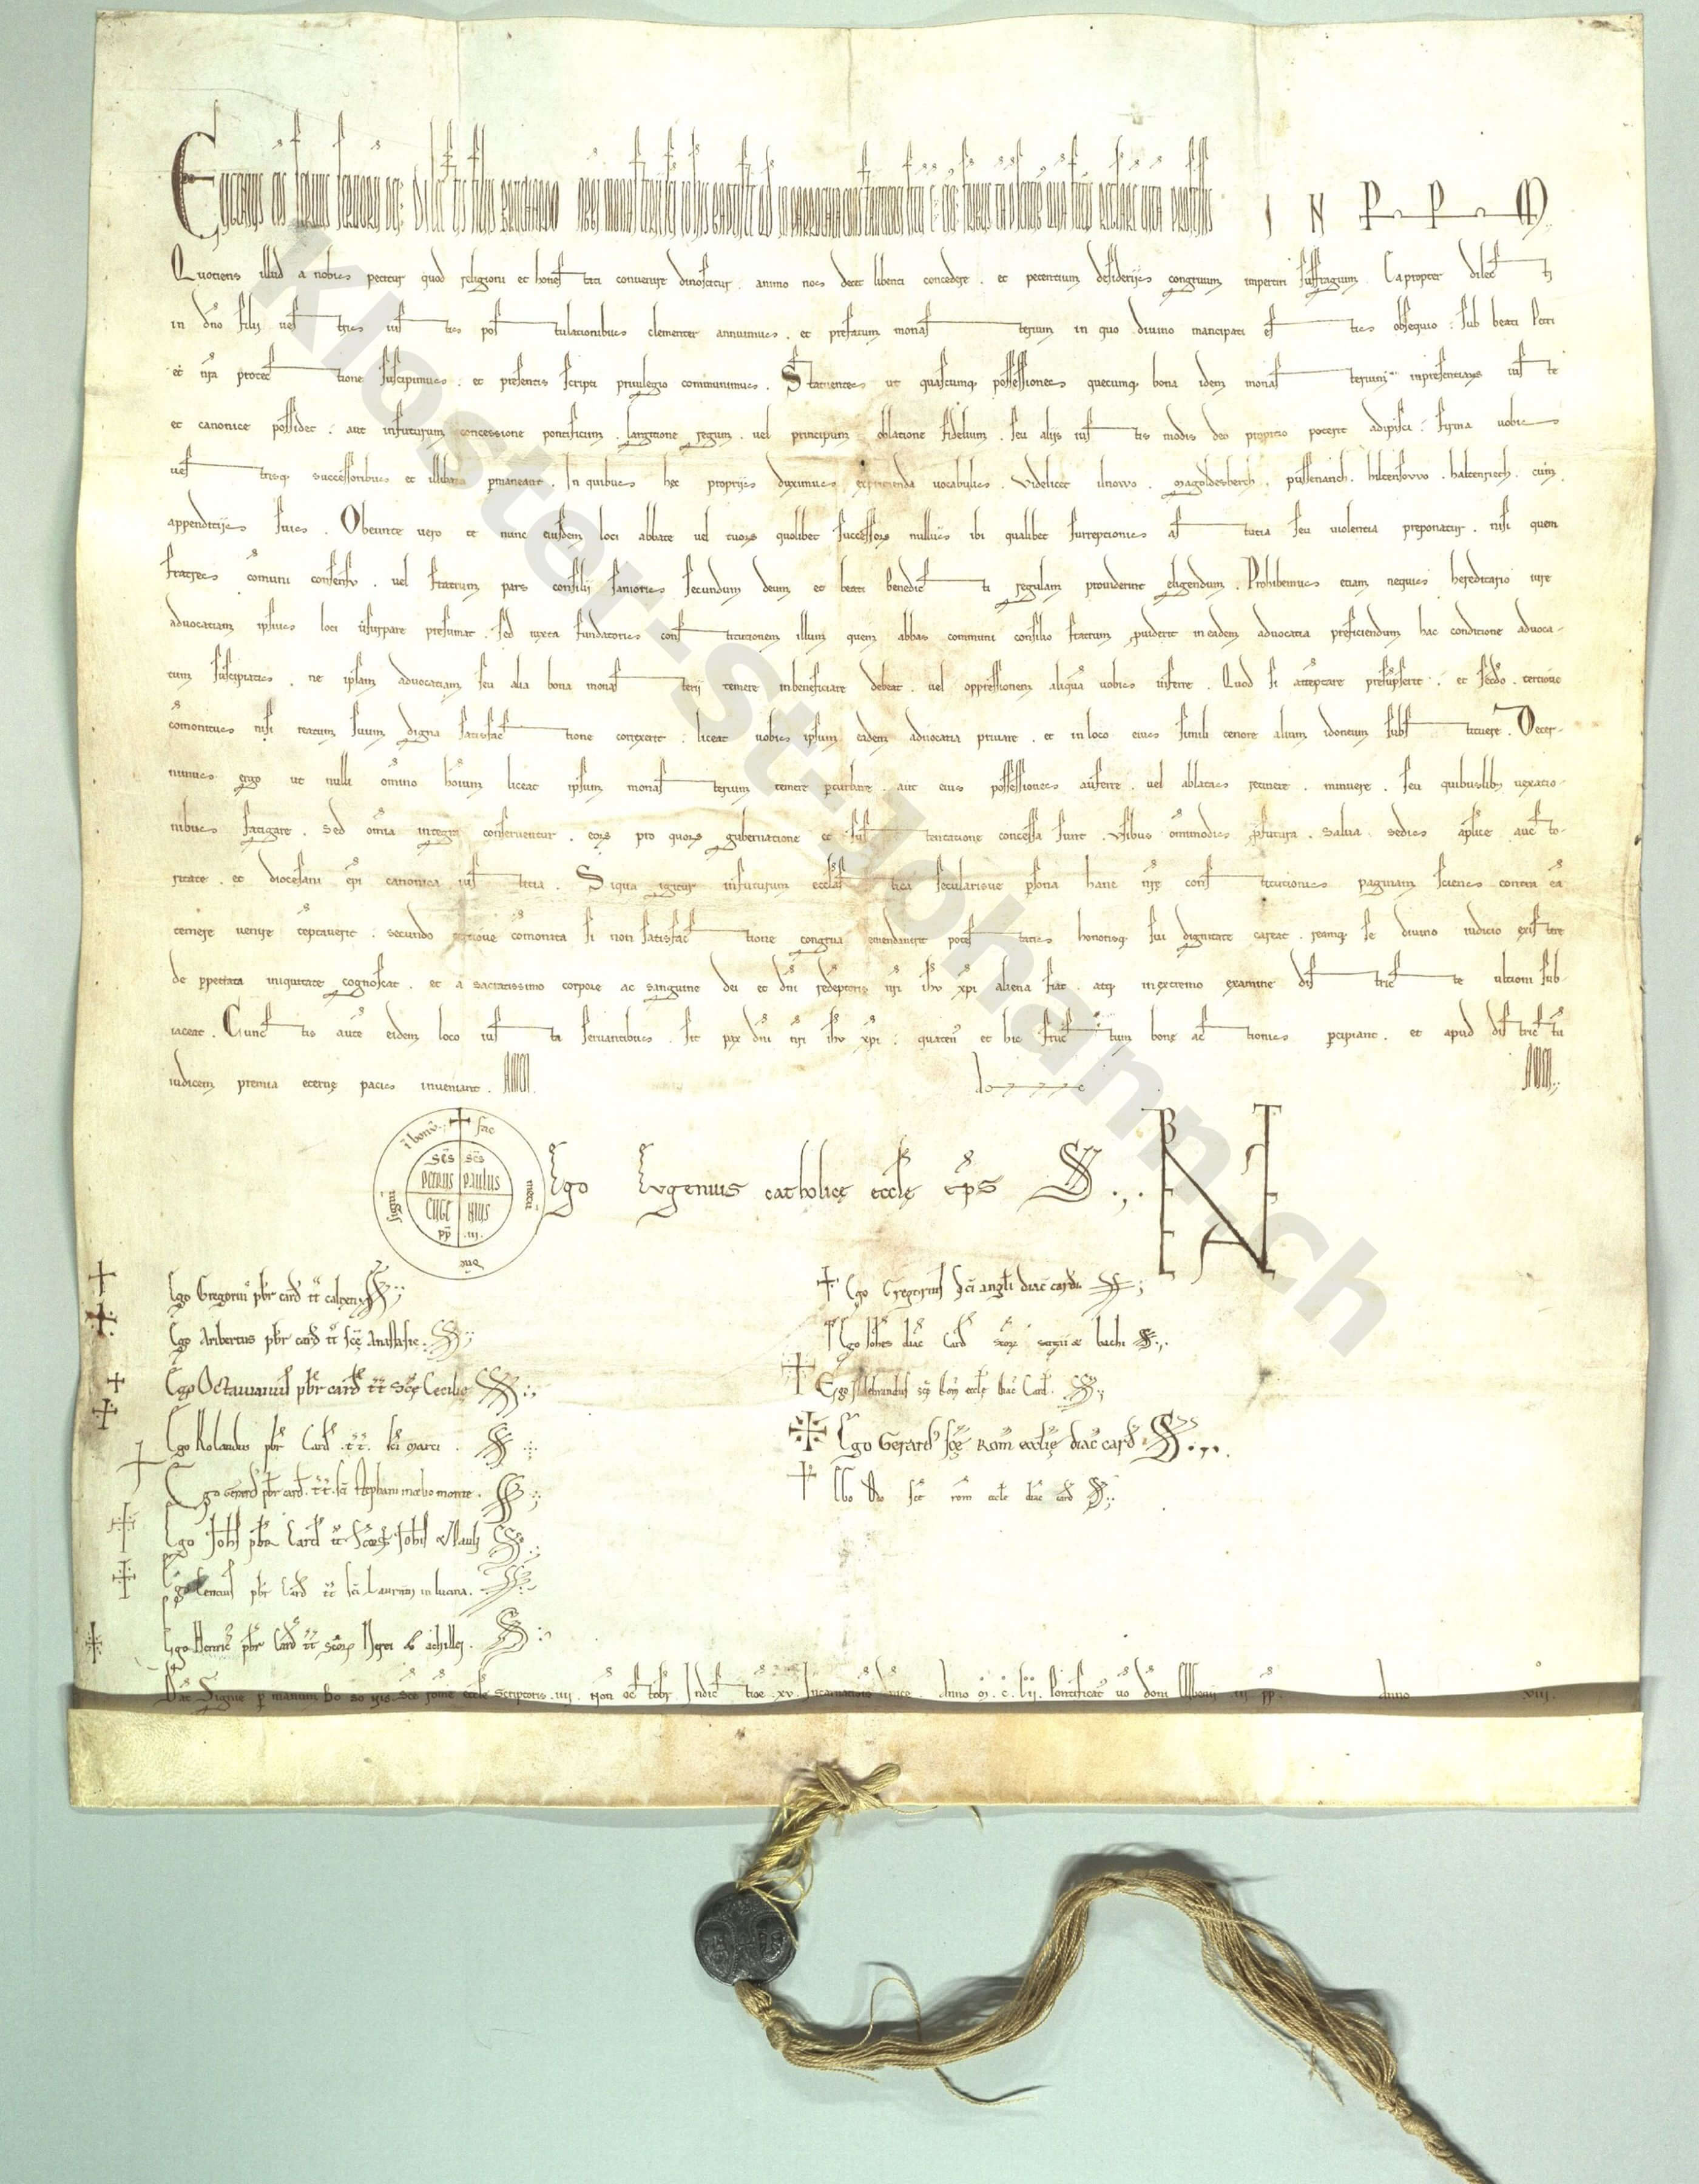 Eugenius ep̄s seruus seruorū dei. Dilectis filiis Burchardo abbati monasterii sc̄i Iohis baptiste IN PP M
Quotiens illud a nobis petitur quod religioni et honestati conuenire dinoscitur . animo nos decet libenti concedere . et petentium desideriis congruum impertiri suffragium . Eapropter dilecti
in dn̄o filii uestris iustis postulationibus clementer annuimus . et prefatum monasterium in quo diuino mancipati estis obsequio . sub beati Petri
et nr̄a protectione suscipimus . et presentis scripti priuilegio communimus . Statuentes ut quascumq; possessiones quecumq; bona idem monasterium inpresentiarum iuste
et canonice possidet . aut infuturum concessione pontificum . largitione regum . uel principum oblatione fidelium . seu aliis iustis modis deo propitio poterit adipisci . firma uobis
uestrisq; successoribus et illibata permaneant . In quibus hec propriis duximus exprimenda uocabulis . Videlicet ilnowo . magoldesberch . pussenanch . hiltensowo . haltenriech . cum
appenditiis suis . Obeunte uero te nunc eiusdem loci abbate uel tuorum quolibet successorum nullus ibi qualibet surreptionis astutia seu uiolentia preponatur . nisi quem
fratres cōmuni consensu . uel fratrum pars consilii sanioris secundum deum et beati Benedicti regulam prouiderint eligendum . Prohibemus etiam nequis hereditario iure
aduocatiam ipsius loci usurpare presumat . sed iuxta fundatoris constitutionem illum quem abbas communi consilio fratrum puiderit in eadem aduocatia preficiendum hac conditione aduoca-
tum suscipiatis . ne ipsam aduocatiam seu alia bona monasterii temere inbeneficiare debeat . uel oppressionem aliquā uobis inferre . Quod si attēptare presūpserit . et secdo . tertioue
cōmonitus nisi reatum suum digna satisfactione correxerit . liceat uobis ipsum eadem aduocatia priuare . et in loco eius simili tenore alium idoneum substituere . Decer-
nimus ergo ut nulli omnino hoium liceat ipsum monasterium temere perturbare . aut eius possessiones auferre . uel ablatas retinere . minuere . seu quibuslibet uexatio-
nibus fatigare . Sed omia integra conseruentur . eorum pro quorum gubernatione et sustentatione concessa sunt . usibus omnimodis profutura . Salua sedis aplice aucto-
ritate . et diocesani epi canonica iustitia . Siqua igitur infuturum ecclesiastica secularisue persona hanc nr̄ę constitutionis paginam sciens contra eā
temere uenire tēptauerit . secundo tertioue cōmonita si non satisfactione congrua emendauerit potestatis honorisq; sui dignitate careat . reamq; se diuino iudicio existere
de perpetrata iniquitate cognoscat . et a sacratissimo corpore ac sanguine dei et dn̄i redēptoris nr̄i ihu xpi aliena fiat . atq; in extremo examine districte ultioni sub-
iaceat . Cunctis autē eidem loco iusta seruantibus . sit pax dn̄i nr̄i ihu xpi . quatenꝰ et hic fructum bonę actionis percipiant . et apud districtū
iudicem premia eternę pacis inueniant . AMEN. AMEN.
✝ fac mecū dn̄e signū ī bonū
sc̄s PETRUS sc̄s PAULUS EUGENIUS pp̄ .III.
Ego Eugenius catholicę eccl̄ę ep̄s SS
Ego Gregorius pbr card tt calixti SS
Ego Aribertus pbr card tt sc̄ę Anastasie. SS
Ego Octauianus pbr card tt sc̄ę Cecilię SS
Ego Rolandus pbr Card . tt . sc̄i marci . SS
Ego Gerard pbr card . tt . sc̄i stephani in celio monte . SS
Ego Iohs pbr Card tt sc̄orum Iohis & Pauli SS
Ego Cencius pbr Card tt sc̄i Laurentii in lucina. SS
Ego Henric pbr Card tt sc̄orum Nerei & achillei. SS
Ego Gregorius sc̄i angli diac card SS
Ego Iohes diac Card sc̄orum sergii & bachi SS
Ego Ildebrandus sc̄ę Rom eccl̄ę diac Card. SS
Ego Gerard sc̄ę Rom ecclīę diac card SS
Ego Odo sc̄e rom eccle diac card SS
Dat Signie per manum Bosonis sc̄e rom̄e eccl̄e Scriptoris . iiii . non octobr Indictiōe xv Incarnationis dn̄ice . Anno M. C. LII. Pontificatꝰ uo domni Eugenii iii pp̄. Anno viii.
kloster-st-johann.ch